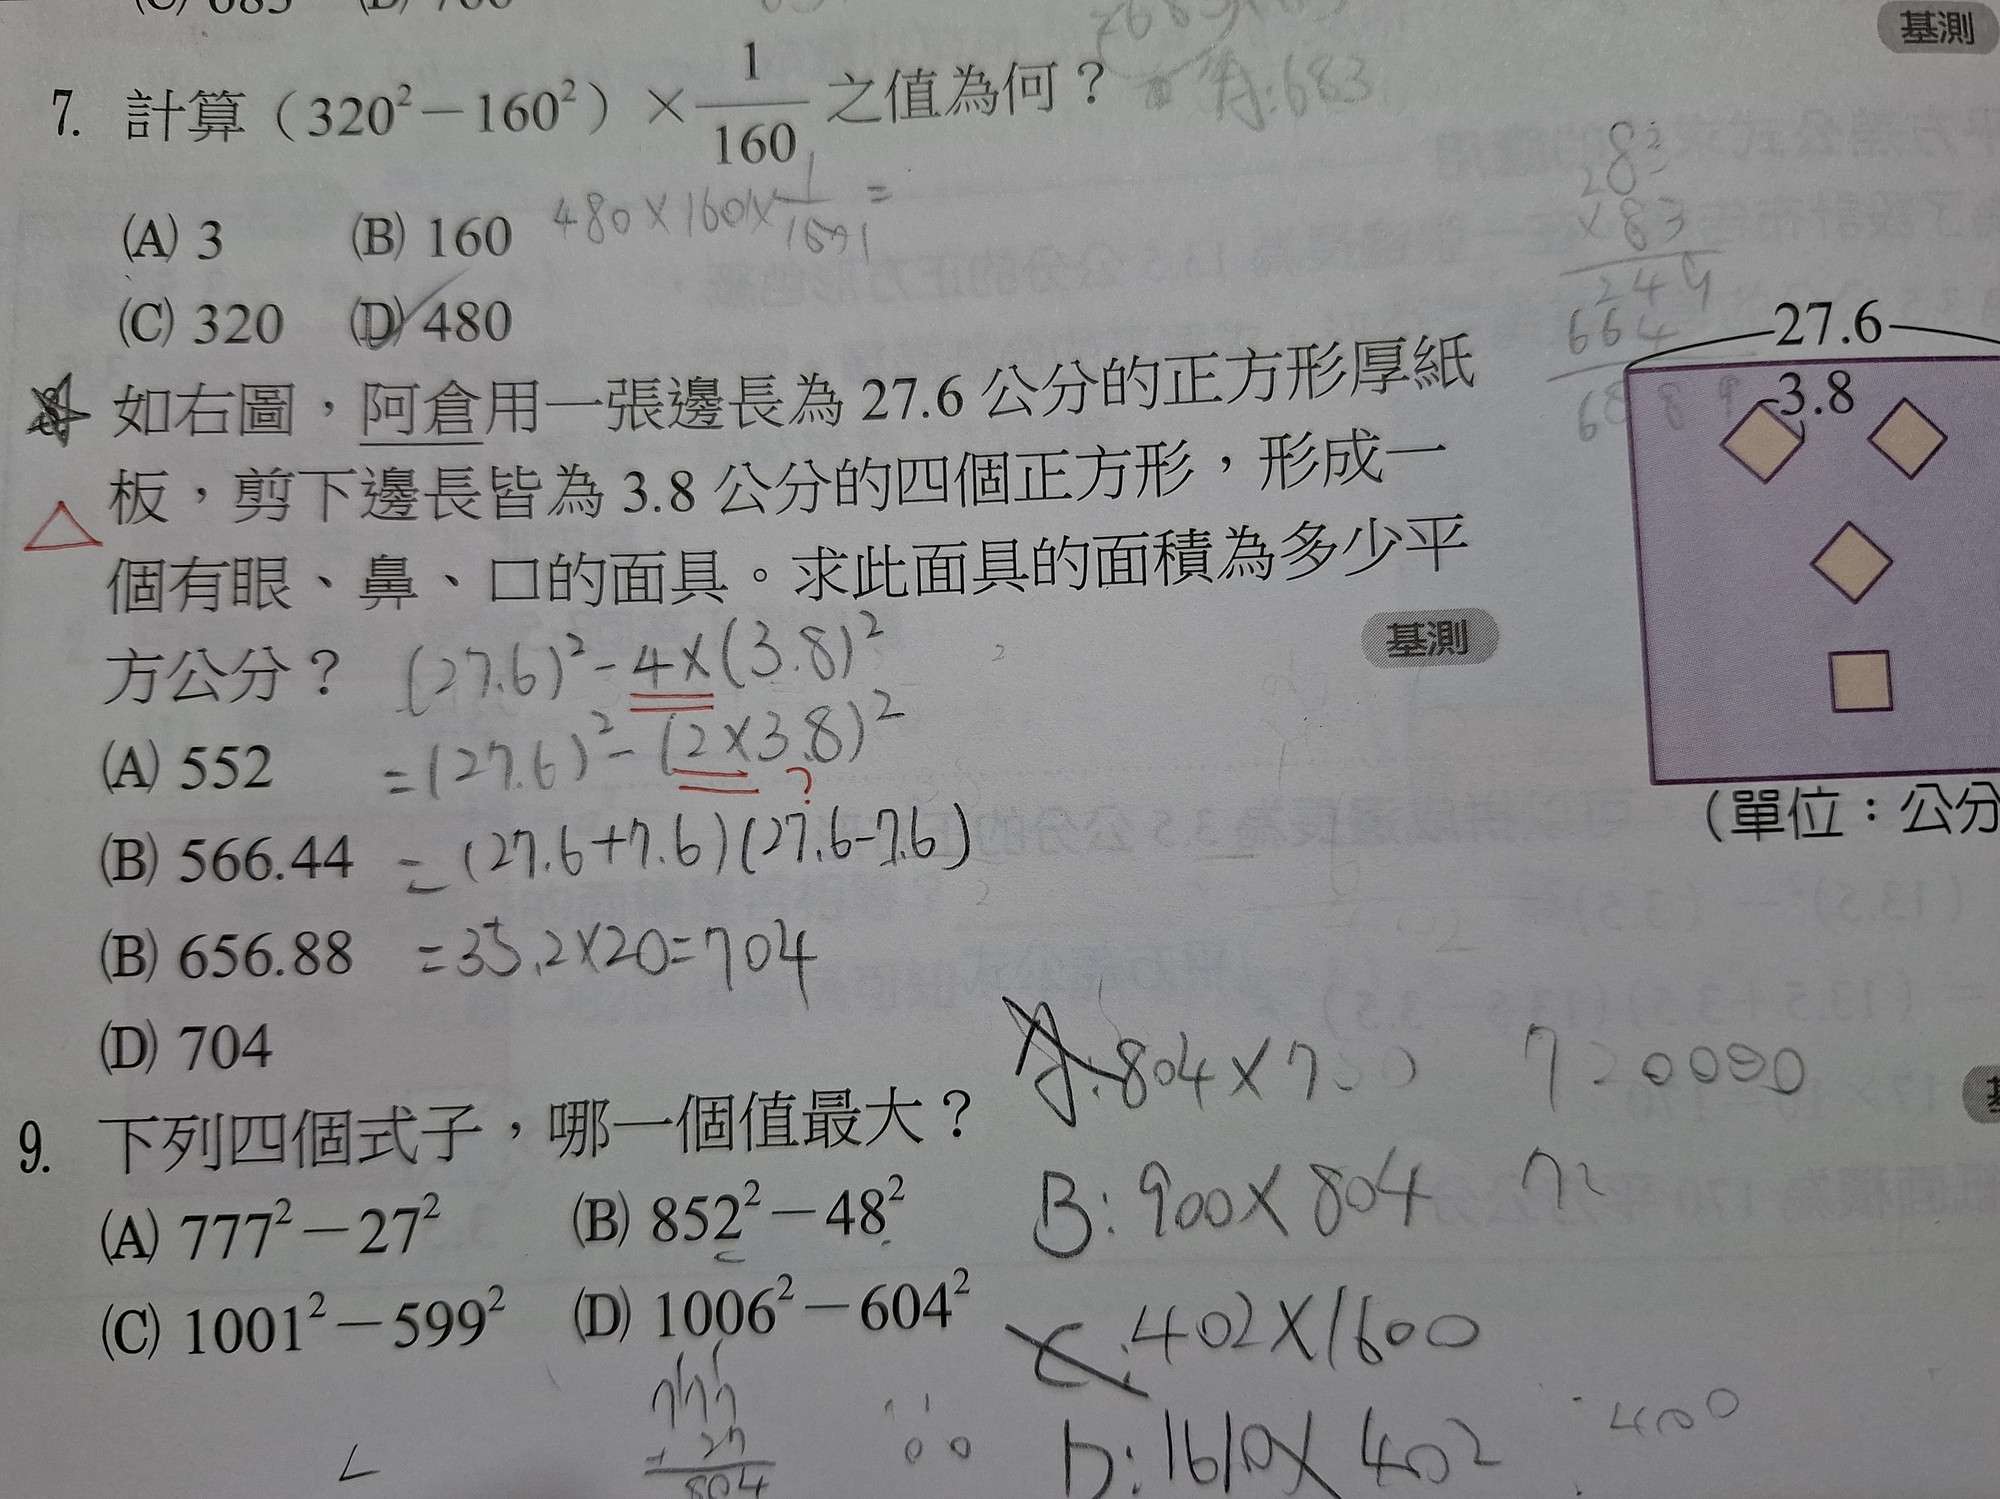 基測
=683×83
A:683
7. 計算（320²－160²）× 1/160 之值為何？
(A) 3 (B) 160
480×160×1/160=
(C) 320 (D) 480
83
×83
249
664
6889
8. 如右圖，阿倉用一張邊長為 27.6 公分的正方形厚紙
板，剪下邊長皆為 3.8 公分的四個正方形，形成一
個有眼、鼻、口的面具。求此面具的面積為多少平
方公分？
基測
27.6
3.8
（單位：公分
(27.6)²-4×(3.8)²
=(27.6)²-(2×3.8)²
?
=(27.6+7.6)(27.6-7.6)
=35.2×20=704
(A) 552
(B) 566.44
(B) 656.88
(D) 704
9. 下列四個式子，哪一個值最大？
(A) 777²－27² (B) 852²－48²
(C) 1001²－599² (D) 1006²－604²
A:804×750
720000
B:900×804
72
C:402×1600
D:1610×402
400
777
+27
804